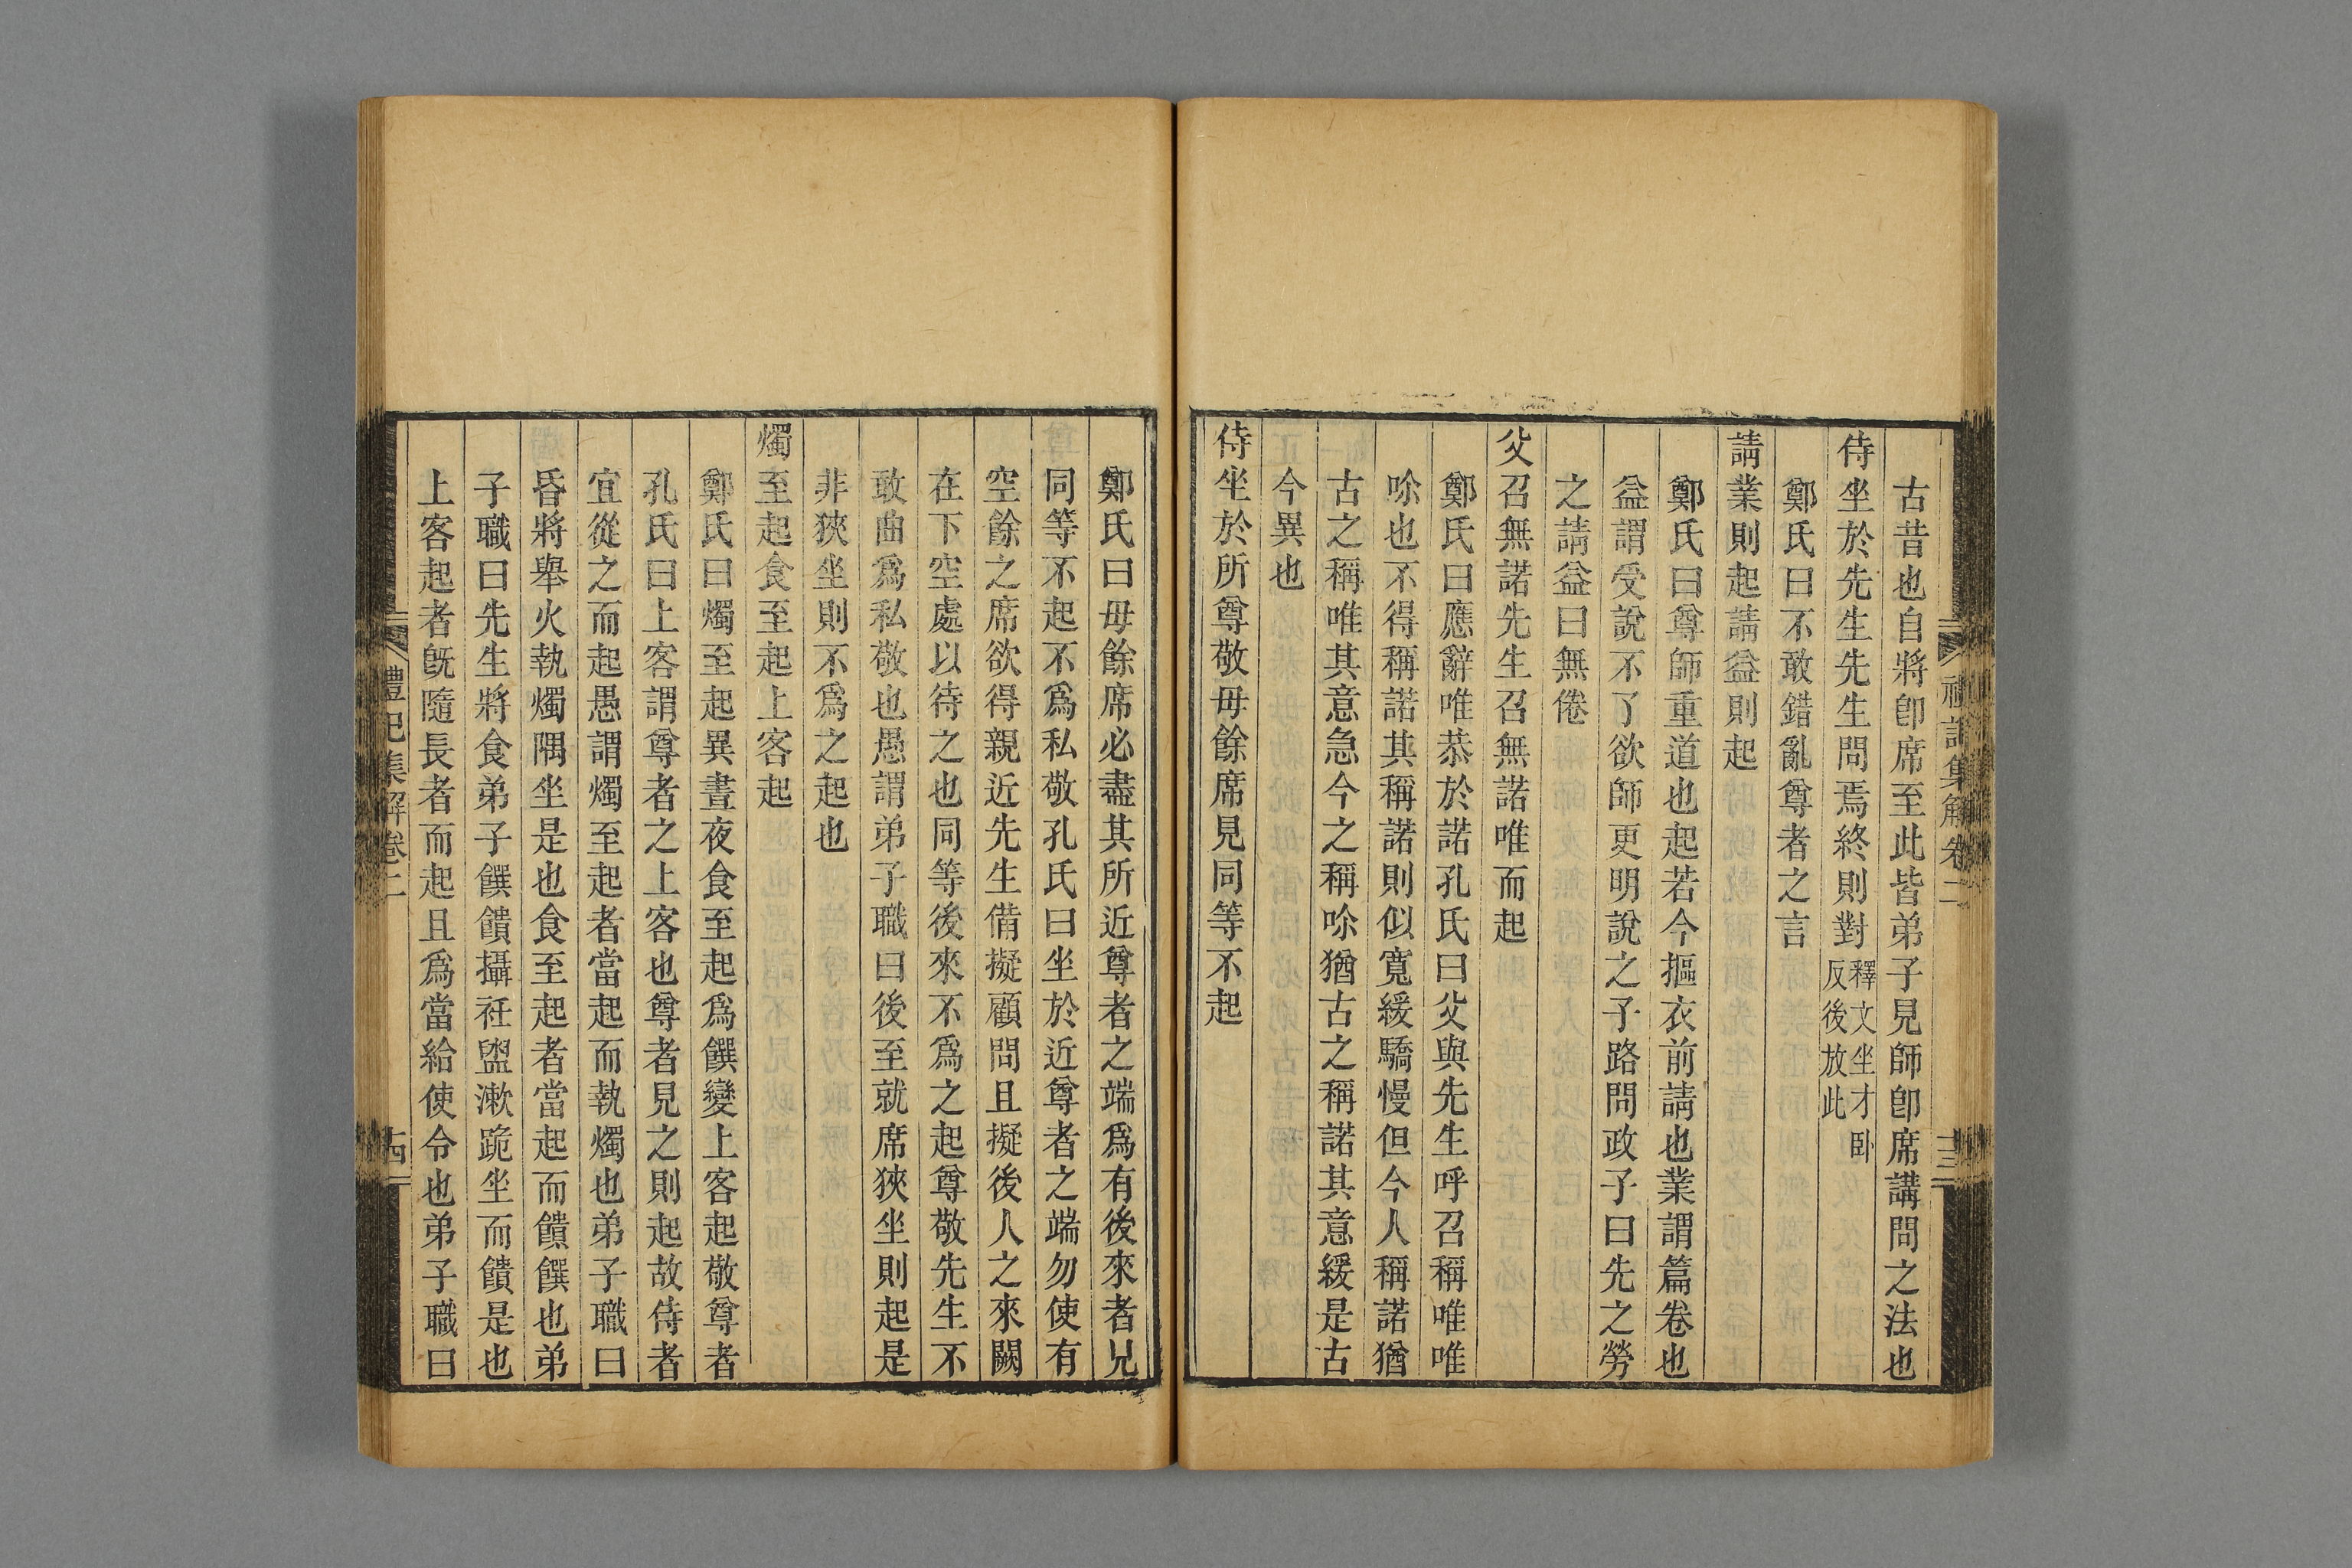 禮記集解卷二
十三
古昔也自將卽席至此皆弟子見師卽席講問之法也
侍坐於先生先生問焉終則對釋文坐才卧
反後放此
鄭氏曰不敢錯亂尊者之言
請業則起請益則起
鄭氏曰尊師重道也起若今摳衣前請也業謂篇卷也
益謂受說不了欲師更明說之子路問政子曰先之勞
之請益曰無倦
父召無諾先生召無諾唯而起
鄭氏曰應辭唯恭於諾孔氏曰父與先生呼召稱唯唯
唹也不得稱諾其稱諾則似寬緩驕慢但今人稱諾猶
古之稱唯其意急今之稱唹猶古之稱諾其意緩是古
今異也
侍坐於所尊敬毋餘席見同等不起
鄭氏曰毋餘席必盡其所近尊者之端爲有後來者兄
同等不起不爲私敬孔氏曰坐於近尊者之端勿使有
空餘之席欲得親近先生備擬顧問且擬後人之來闕
在下空處以待之也同等後來不爲之起尊敬先生不
敢曲爲私敬也愚謂弟子職曰後至就席狹坐則起是
非狹坐則不爲之起也
燭至起食至起上客起
鄭氏曰燭至起異晝夜食至起爲饌變上客起敬尊者
孔氏曰上客謂尊者之上客也尊者見之則起故侍者
宜從之而起愚謂燭至起者當起而執燭也弟子職曰
昏將舉火執燭隅坐是也食至起者當起而饋饌也弟
子職曰先生將食弟子饌饋攝衽盥漱跪坐而饋是也
上客起者旣隨長者而起且爲當給使令也弟子職曰
禮記集解卷二
十四